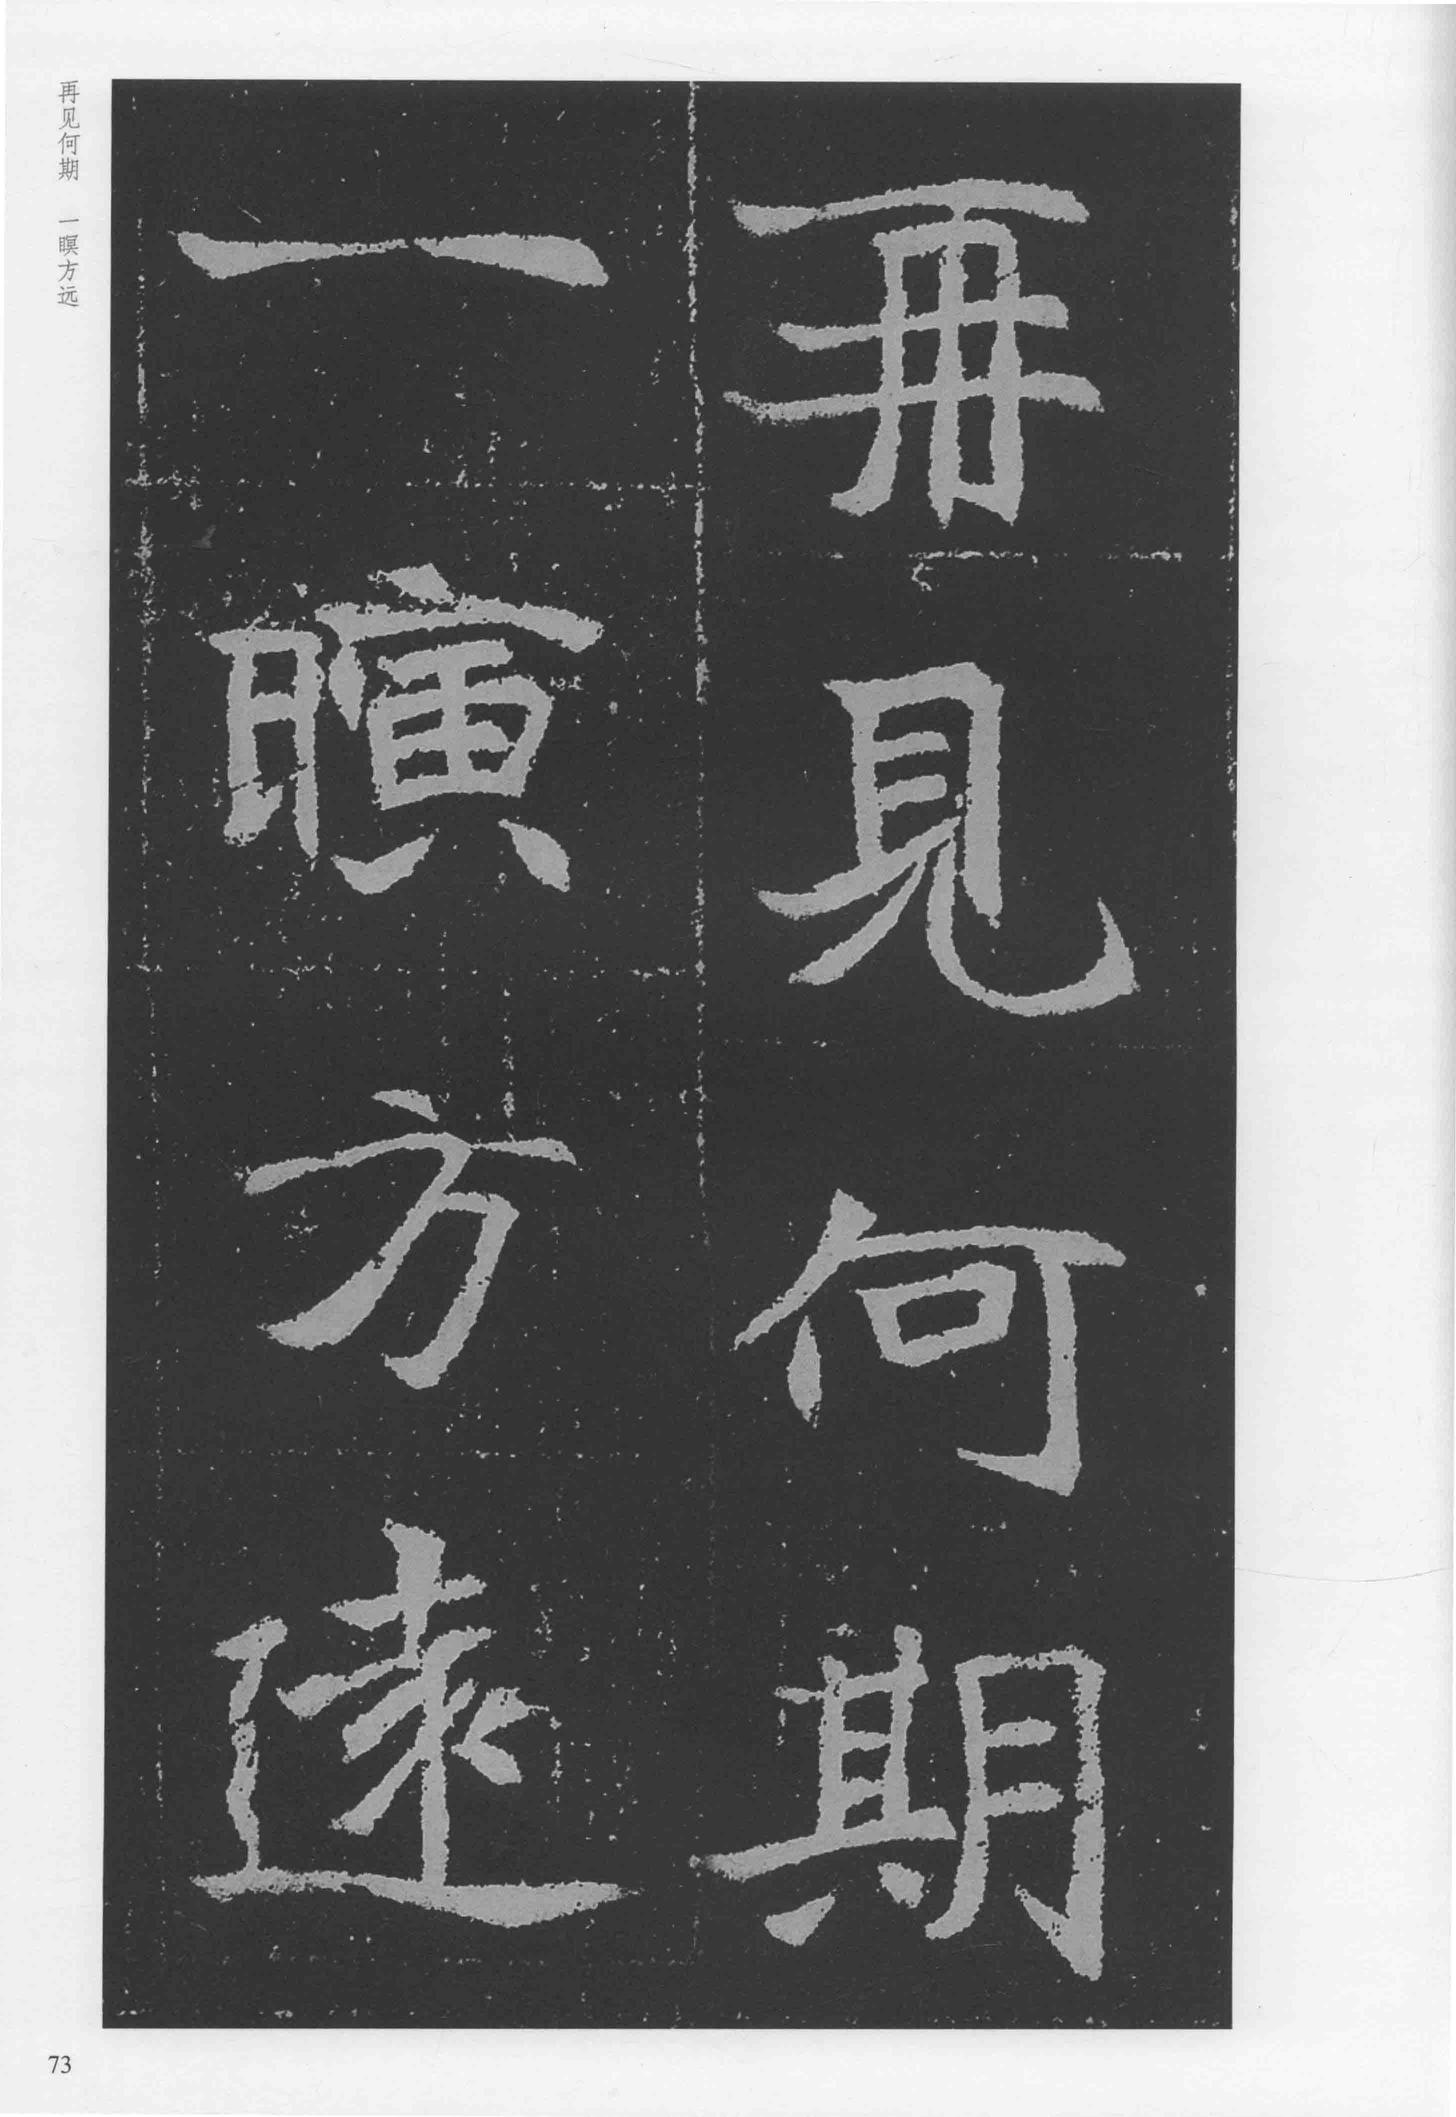 再見何期
一瞑方遠
再见何期　一瞑方远
73